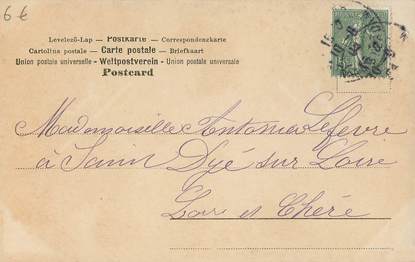 6 €
Levelező-Lap — Postkarte — Correspondenzkarte
Cartolina postale — Carte postale — Briefkaart
Union postale universelle - Weltpostverein - Union postale universale
Postcard
Mademoiselle Antonia Lefevre
à Saint Dyé sur Loire
Loir et Chère